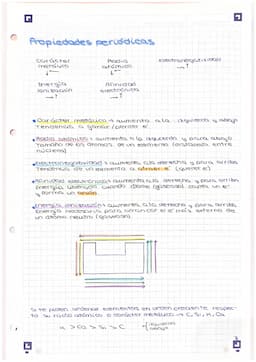 Propiedades periódicas
Carácter metálico
Radio atómico
electronegatividad
Energía ionización
Afinidad electrónica
• Carácter metálico: aumenta a la izquierda y abajo
Tendencia a
• Radio atómico: aumenta a la izquierda y para abajo
Tamaño de los átomos de un elemento (distancia entre
núcleos)
• Electronegatividad: aumenta a la derecha y para arriba
Tendencia de un elemento a
• Afinidad electrónica: aumenta a la derecha y para arriba
Energía cuando átomo (gaseoso) un e⁻
y forma un
• Energía ionización: aumenta a la derecha y para arriba
Energía necesaria para arrancar el e⁻ más externo de
un átomo neutro (gaseoso)
Si te piden ordenar elementos en orden creciente respec-
to su radio atómico o carácter metálico → C, Si, K, Ca
K > Ca > Si > C